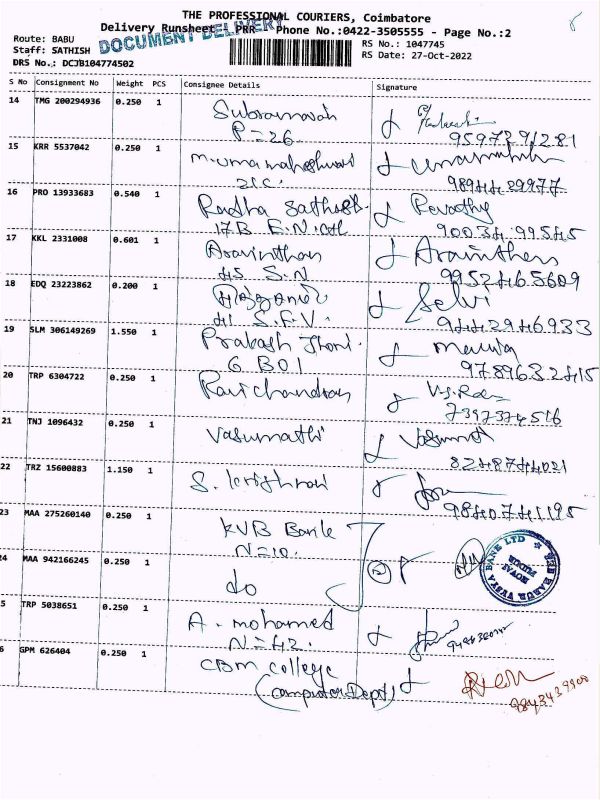 THE PROFESSIONAL COURIERS, Coimbatore
Delivery Runsheet - PRR - Phone No.:0422-3505555 - Page No.:2
DOCUMENT DELIVERY
Route: BABU
Staff: SATHISH
DRS No.: DCJB104774502
RS No.: 1047745
RS Date: 27-Oct-2022
S No Consignment No Weight PCS Consignee Details Signature
14 TMG 200294936 0.250 1
P=26
15 KRR 5537042 0.250 1 M. uma maheshwari
21C.
9894429977
16 PRO 13933683 0.540 1 Radha Sathish Revathy
17B E.N.
9003499545
17 KKL 2331008 0.601 1 Aravinthan
45 S.N
9952465609
18 EDQ 23223862 0.200 1 Selvi
41 S.F.V.
9442946933
19 SLM 306149269 1.550 1 Prakash
6 B01
9789632415
20 TRP 6304722 0.250 1 Ravichandran
7397374516
21 TNJ 1096432 0.250 1 Vasumathi
8248744021
22 TRZ 15600883 1.150 1 S. krishnan
9840741195
23 MAA 275260140 0.250 1 KVB Bank
N=10.
24 MAA 942166245 0.250 1 do
TRP 5038651 0.250 1 A. mohamed
N=42.
GPM 626404 0.250 1 CBM college
(Computer Dept)